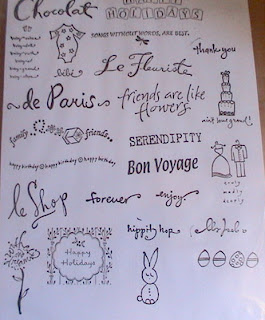 Chocolat
HAPPY
HOLIDAYS
SONGS WITHOUT WORDS, ARE BEST.
thank you
bébé
Le Fleuriste
de Paris
friends are like
flowers
ain't love grand!
family
friends
SERENDIPITY
happy birthday happy birthday happy birthday
Bon Voyage
truly
madly
dearly
le Shop
forever
enjoy.
hippity hop
Happy
Holidays